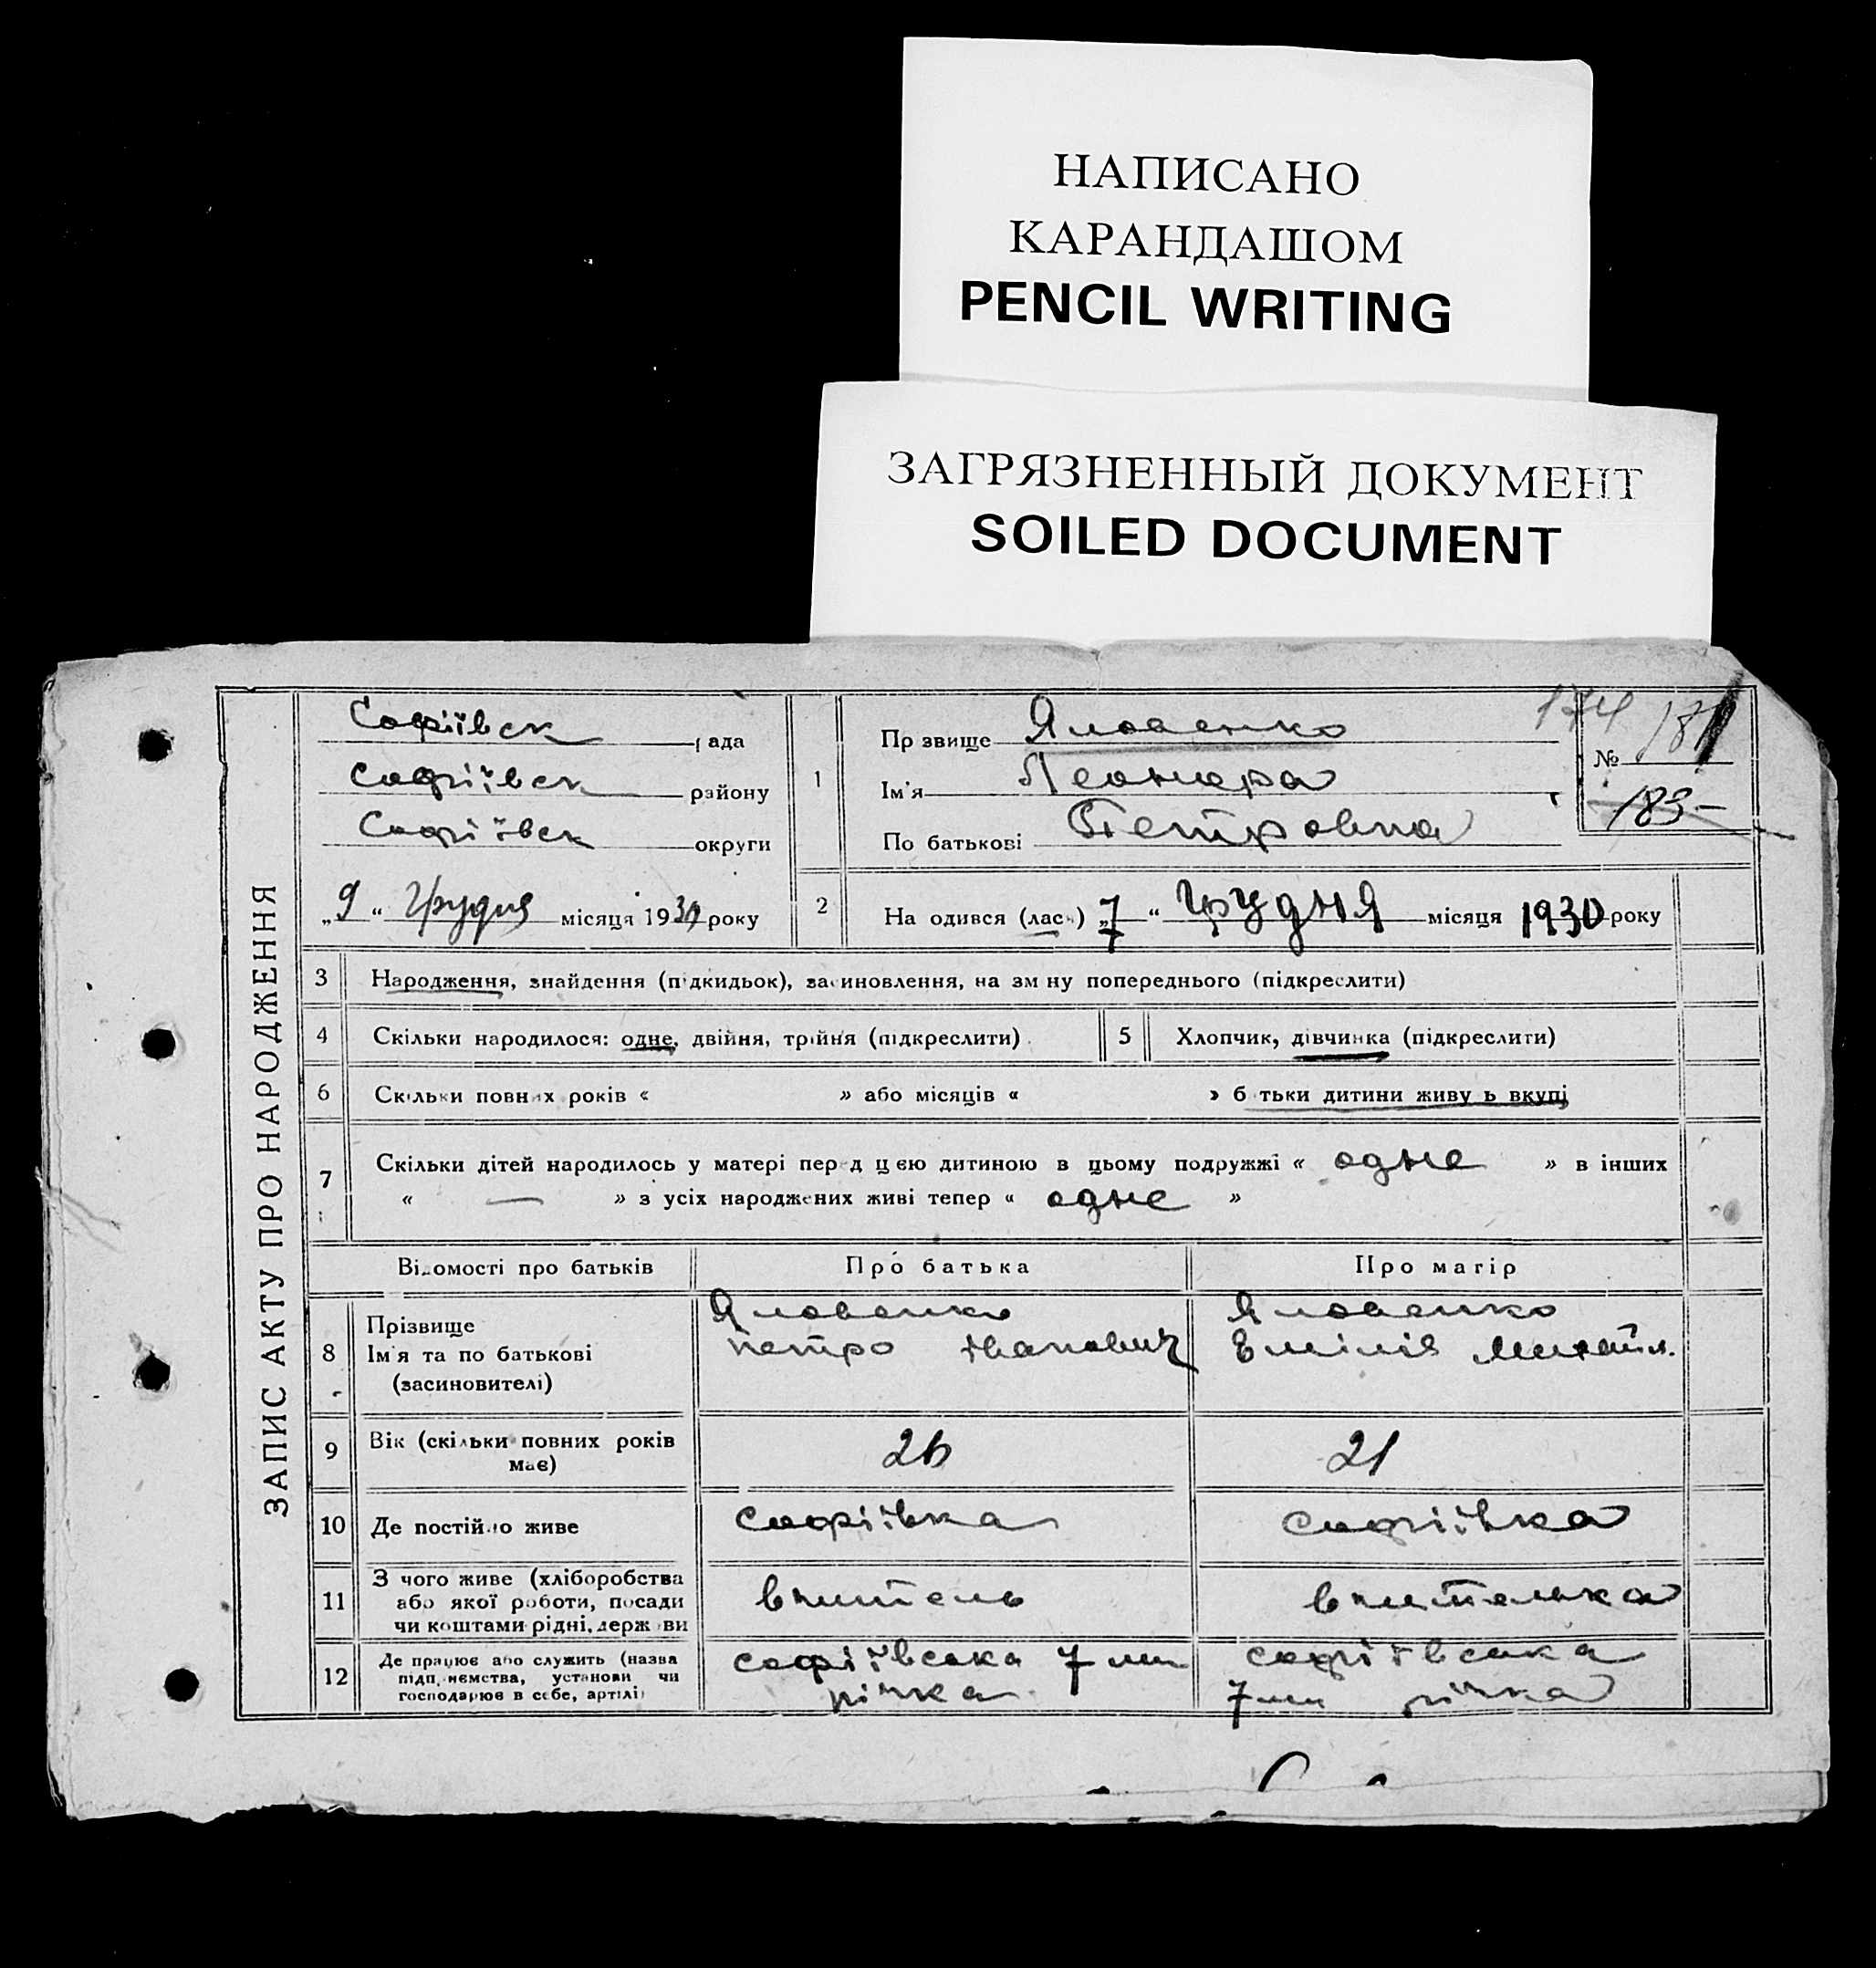 НАПИСАНО
КАРАНДАШОМ
PENCIL WRITING
ЗАГРЯЗНЕННЫЙ ДОКУМЕНТ
SOILED DOCUMENT
ЗАПИС АКТУ ПРО НАРОДЖЕННЯ
Софіївск рада
Софіївск району
Софіївск округи
„9“ Грудня місяця 1930 року
1
Пр звище Яловенко
Ім'я Леонора
По батькові Петровна
174 181
№
183
2 На одився (лась) „7“ Грудня місяця 1930 року
3 Народження, знайдення (підкидьок), засиновлення, на зм ну попереднього (підкреслити)
4 Скільки народилося: одне, двійня, трійня (підкреслити) 5 Хлопчик, дівчинка (підкреслити)
6 Скільки повних років « » або місяців « » б тьки дитини живу ь вкупі
7 Скільки дітей народилось у матері перед цією дитиною в цьому подружжі « одне » в інших
« — » з усіх народжених живі тепер « одне »
Відомості про батьків Про батька Про матір
8 Прізвище
Ім'я та по батькові
(засиновителі)
Яловенко
Петро Іванович
Яловенко
Емілія Михайл.
9 Вік (скільки повних років
має)
26 21
10 Де постійно живе Софіївка Софіївка
11 З чого живе (хліборобства
або якої роботи, посади
чи коштами рідні, держ ви
вчитель вчителька
12 Де працює або служить (назва
підприємства, установи чи
господарює в себе, артілі)
Софіївська 7 ми
річка
Софіївська
7 ми річка